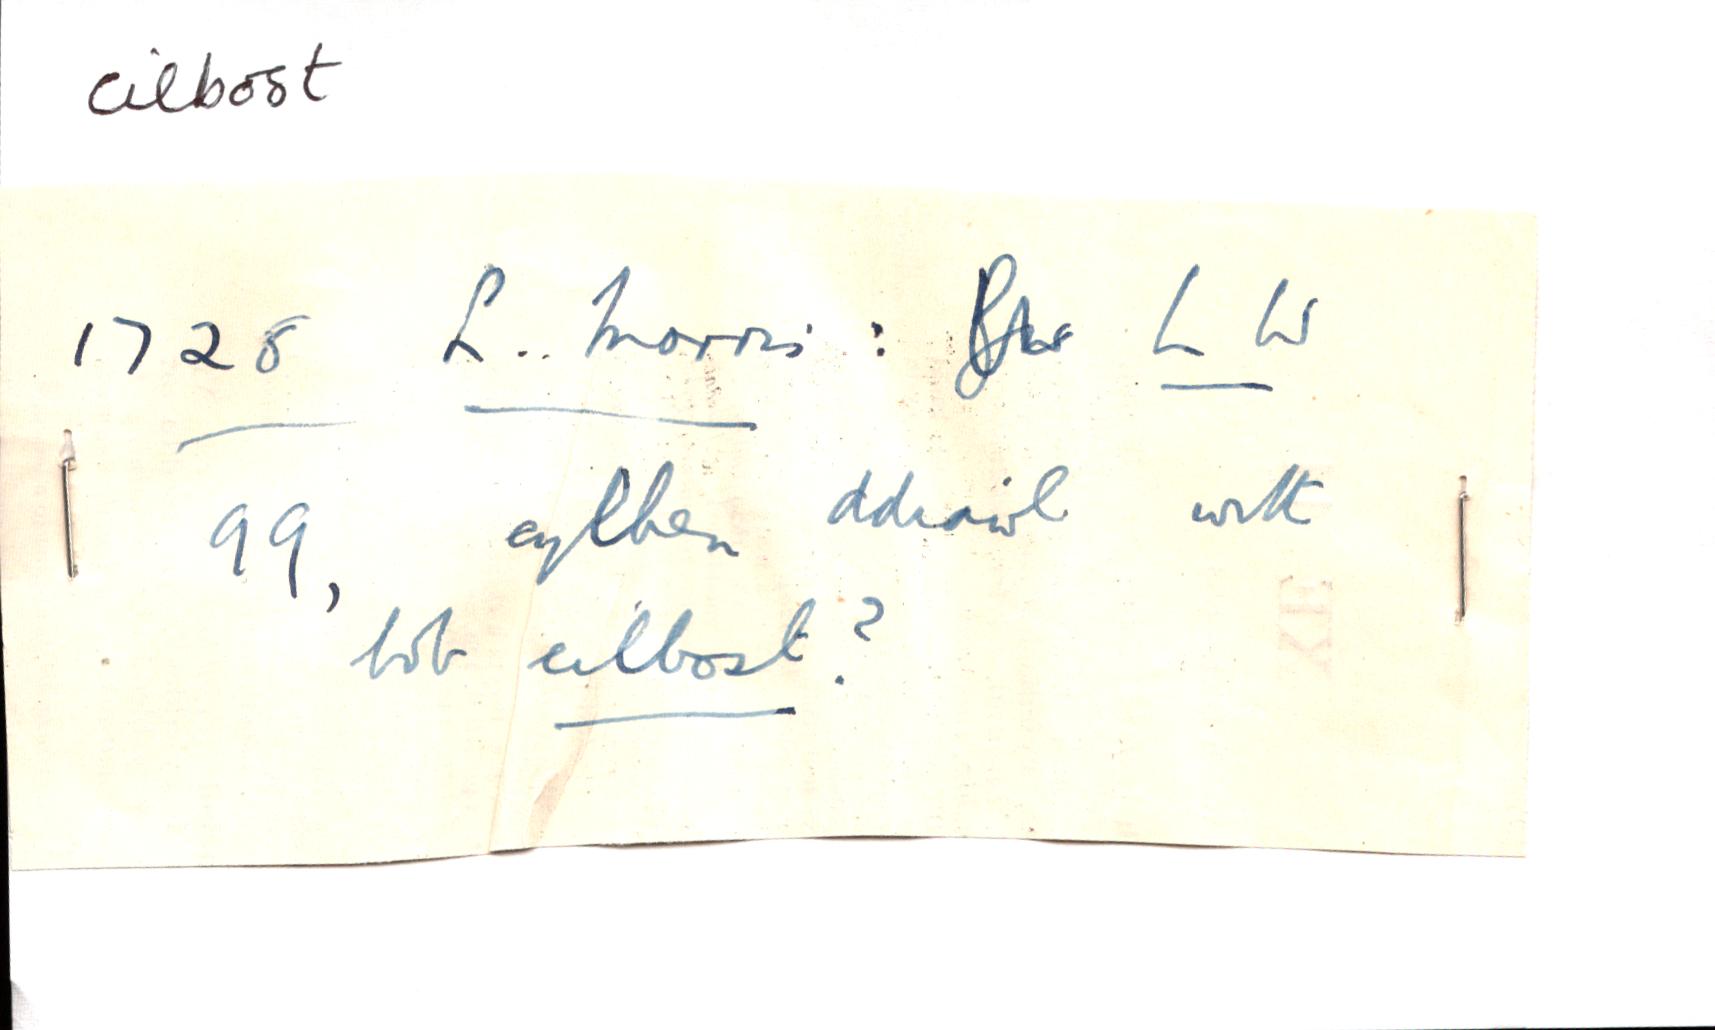 cilbost
1728 L. Morris: LW
99, cythen ddiawl wrth
bob cilbost?